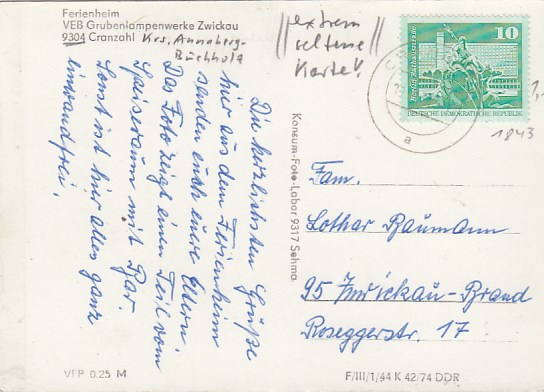 Ferienheim
VEB Grubenlampenwerke Zwickau
9304 Cranzahl Krs. Annaberg-
Buchholz
extrem
seltene
Karte!
10
Berlin, Rathausstraße
DEUTSCHE DEMOKRATISCHE REPUBLIK
a
1,-
1843
Die herzlichsten Grüße
hier aus dem Ferienheim
senden euch eure Eltern.
Das Foto zeigt einen Teil vom
Speiseraum mit Bar.
Sonst ist hier alles ganz
einwandfrei.
Konsum-Foto-Labor 9317 Sehma
Fam.
Lothar Baumann
95 Zwickau-Brand
Roseggerstr. 17
VEP 0.25 M
F/III/1/44 K 42/74 DDR